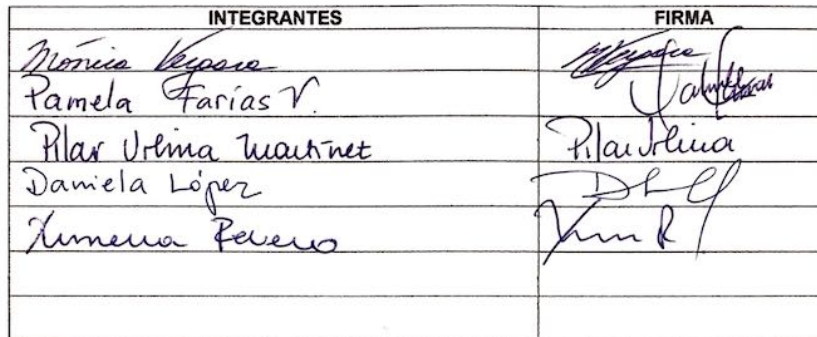 INTEGRANTES FIRMA
Mónica Vergara
Pamela Farías V.
Pilar Urbina Martínez Pilar Urbina
Daniela López
Ximena R